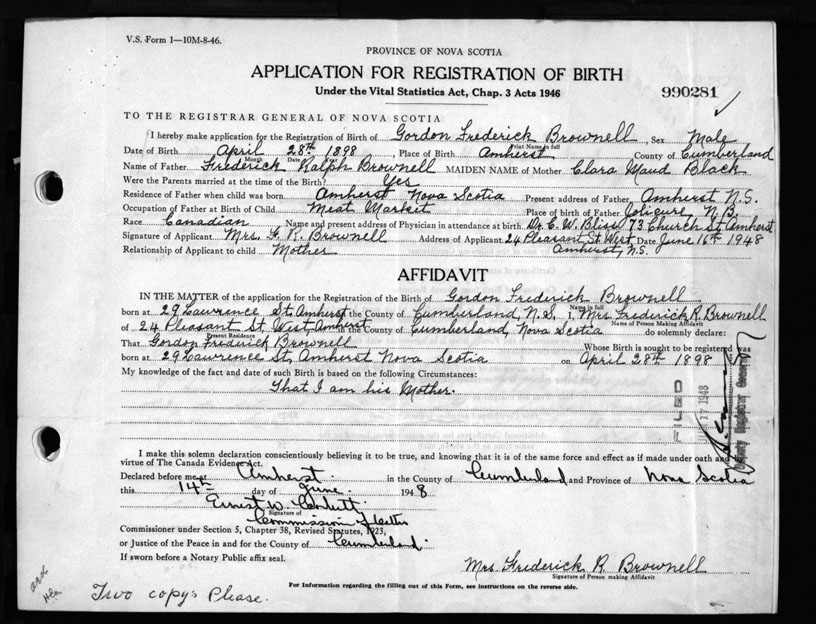 V.S. Form 1—10M-8-46.
PROVINCE OF NOVA SCOTIA
APPLICATION FOR REGISTRATION OF BIRTH
Under the Vital Statistics Act, Chap. 3 Acts 1946
990281
TO THE REGISTRAR GENERAL OF NOVA SCOTIA
I hereby make application for the Registration of Birth of Gordon Frederick Brownell, Sex Male
Print Name in full
Date of Birth April 28th 1898, Place of Birth Amherst County of Cumberland
Month Date Year
Name of Father Frederick Ralph Brownell MAIDEN NAME of Mother Clara Maud Black
Were the Parents married at the time of the Birth? Yes
Residence of Father when child was born Amherst Nova Scotia Present address of Father Amherst N.S.
Occupation of Father at Birth of Child Meat Market Place of birth of Father Jolicure, N.B.
Race Canadian Name and present address of Physician in attendance at birth Dr. C. W. Bliss 73 Church St. Amherst
Signature of Applicant Mrs. F. R. Brownell Address of Applicant 24 Pleasant St. West Date June 16th 1948
Relationship of Applicant to child Mother Amherst, N.S.
AFFIDAVIT
IN THE MATTER of the application for the Registration of the Birth of Gordon Frederick Brownell
Name in full
born at 29 Lawrence St. Amherst in the County of Cumberland, N.S. I, Mrs. Frederick R. Brownell
Name of Person Making Affidavit
of 24 Pleasant St West Amherst in the County of Cumberland, Nova Scotia do solemnly declare:
Present Residence
That Gordon Frederick Brownell Whose Birth is sought to be registered was
born at 29 Lawrence St, Amherst Nova Scotia on April 28th 1898
My knowledge of the fact and date of such Birth is based on the following Circumstances:
That I am his Mother.
FILED
17 1948
Deputy Registrar General
I make this solemn declaration conscientiously believing it to be true, and knowing that it is of the same force and effect as if made under oath and by
virtue of The Canada Evidence Act.
Declared before me at Amherst in the County of Cumberland and Province of Nova Scotia
this 14th day of June 1948
Ernest W.
Signature of
Commission
Commissioner under Section 5, Chapter 38, Revised Statutes, 1923,
or Justice of the Peace in and for the County of Cumberland.
If sworn before a Notary Public affix seal.
Mrs. Frederick R Brownell
Signature of Person making Affidavit
For Information regarding the filling out of this Form, see instructions on the reverse side.
Two copys Please.